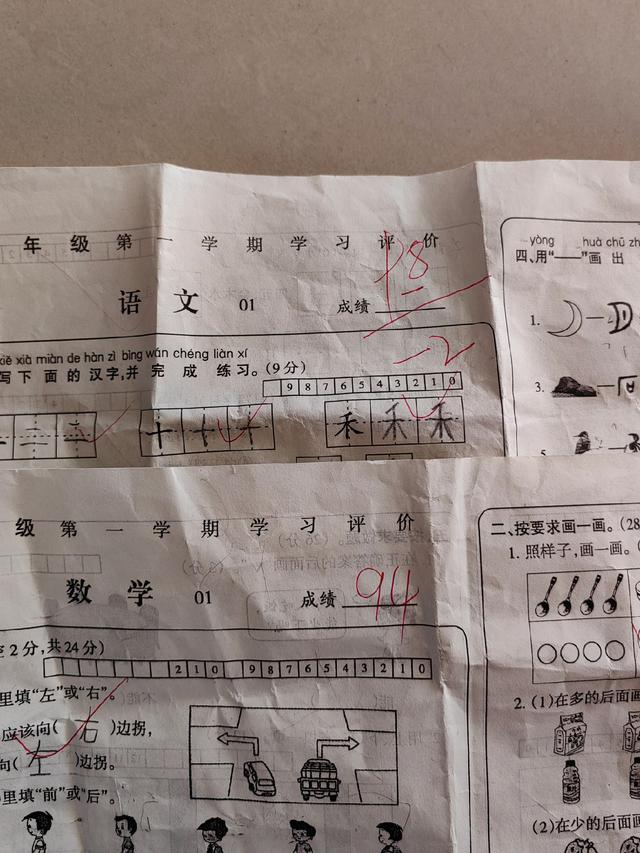 年级第一学期学习评价
语文 01 成绩 98
xiě xià miàn de hàn zì bìng wán chéng liàn xí
写下面的汉字,并完成练习。(9分)
-2
9 8 7 6 5 4 3 2 1 0
三 三
十 十 十
禾 禾 禾
yòng huà chū zh
四、用“——”画出
1.
3.
级第一学期学习评价
数学 01 成绩 94
2分,共24分)
2 1 0 9 8 7 6 5 4 3 2 1 0
里填“左”或“右”。
应该向(右)边拐,
向(左)边拐。
里填“前”或“后”。
二、按要求画一画。(28
1. 照样子,画一画。
2. (1)在多的后面画
(2)在少的后面